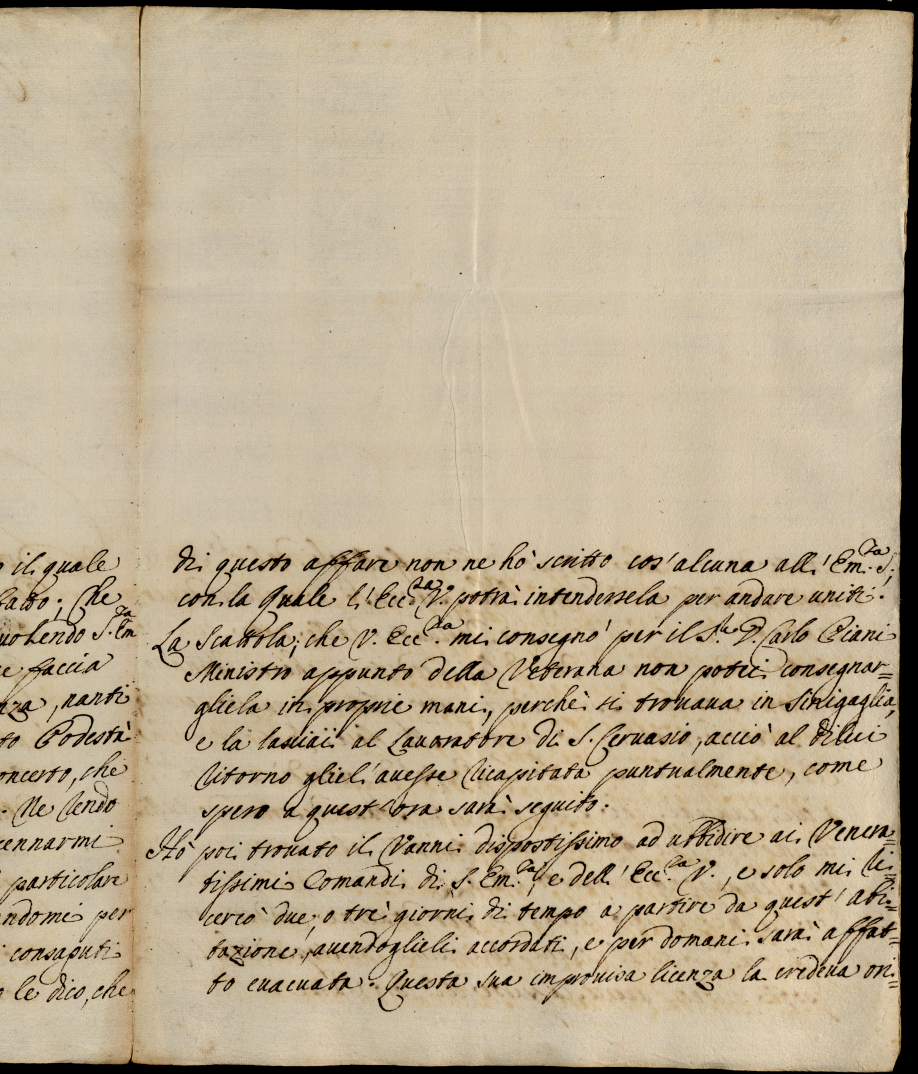 o il quale
fatto; Che
volendo S. Em.za
e faccia
nza, nanti
to Podestà
oncerto, che
. Ne rendo
cennarmi
particolare
ndomi per
i consaputi
o le dico, che
di questo affare non ne hò scritto cos'alcuna all'Em.za S.,
con la quale l'Ecc.za V. potrà intendersela per andare uniti.
La Scattola, che V. Ecc.za mi consegnò per il S.r D. Carlo Piani
Ministro appunto della Veterana non potei consegnar=
gliela in proprie mani, perchè si trovava in Sinigaglia,
e la lasciai al Lavoratore di S. Gervasio, acciò al di lui
ritorno gliel'avesse ricapitata puntualmente, come
spero a quest'ora sarà seguito.
Hò poi trovato il Vanni dispostissimo ad ubbidire ai Venera=
tissimi Comandi di S. Em.za, e dell'Ecc.za V., e solo mi ri=
cercò due, o trè giorni di tempo a partire da quest'abi=
tazione, avendoglieli accordati, e per domani sarà affat=
to evacuata. Questa sua improvisa licenza la credeva ori=